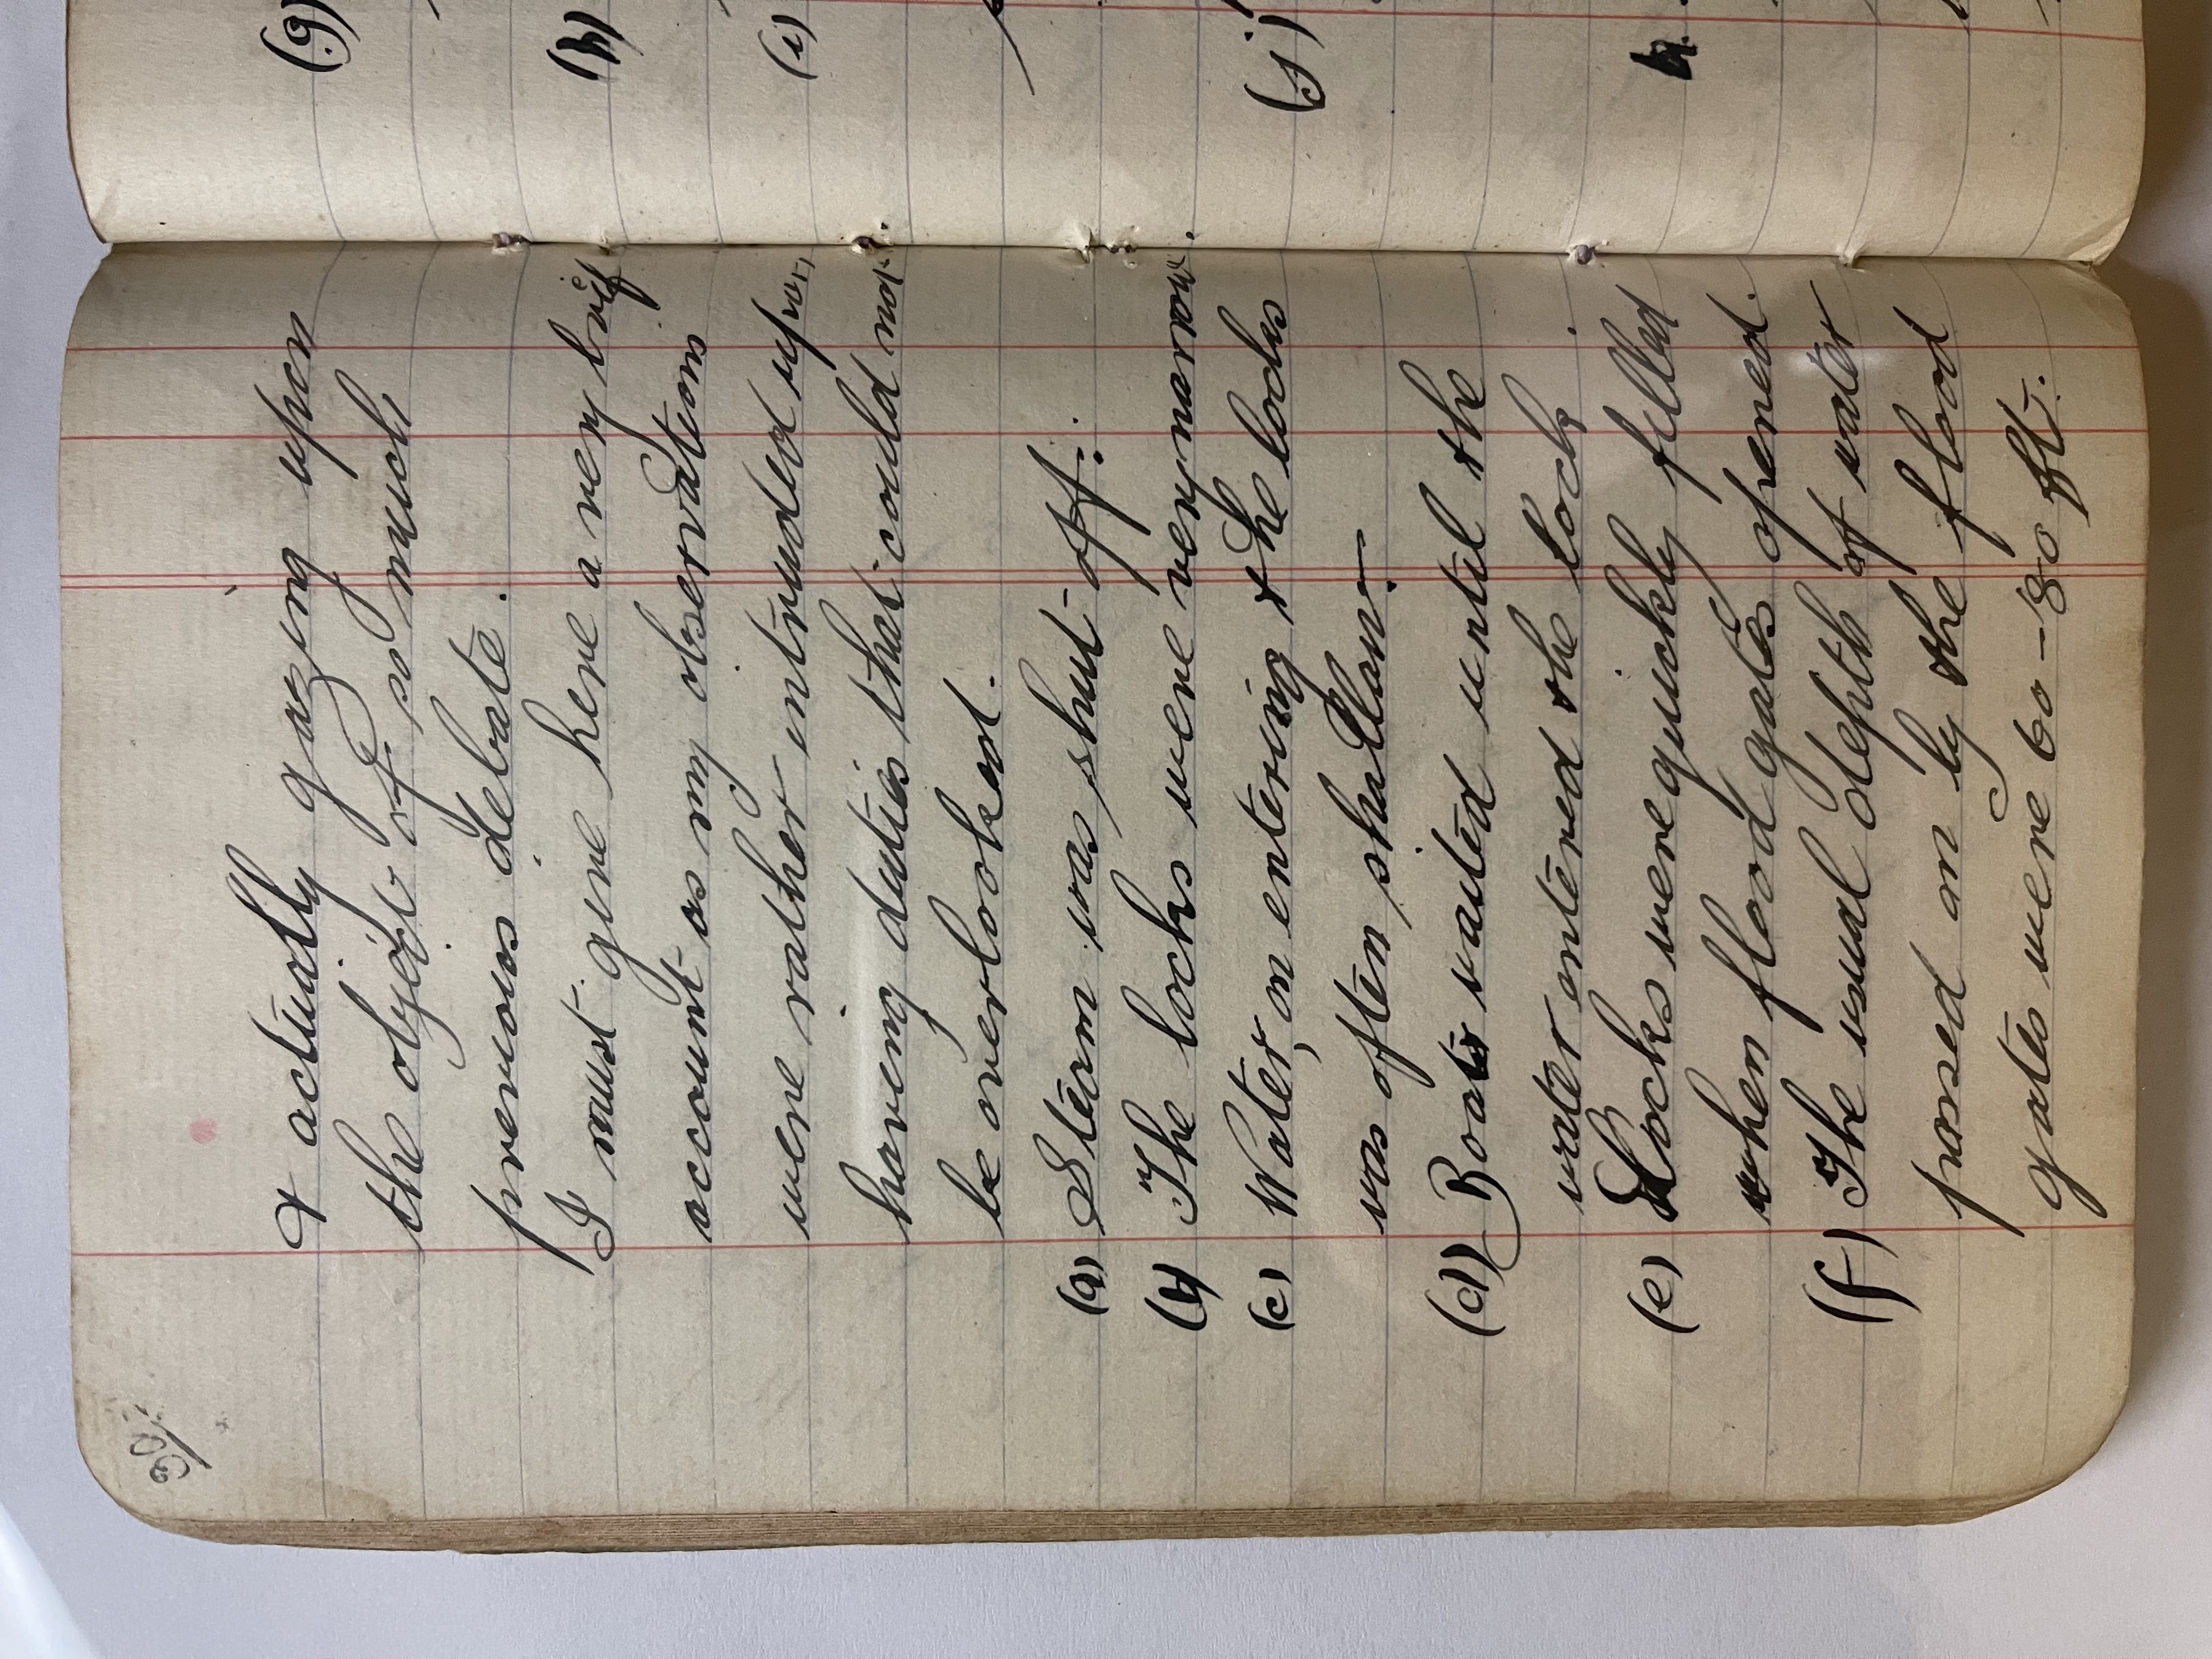 30
& actually gazing upon
the object of so much
previous debate.
I must give here a very brief
account as my observations
were rather intruded upon,
having duties that could not
be overlooked.
(a) Steam was shut off.
(b) The locks were very narrow.
(c) Water, on entering the locks
was often shallow.
(d) Boats waited until the
water entered the lock.
(e) Locks were quickly filled
when flood gates opened.
(f) The usual depth of water
passed on by the flood
gates were 60-80 ft.
(g)
(h)
(i)
(j)
k.